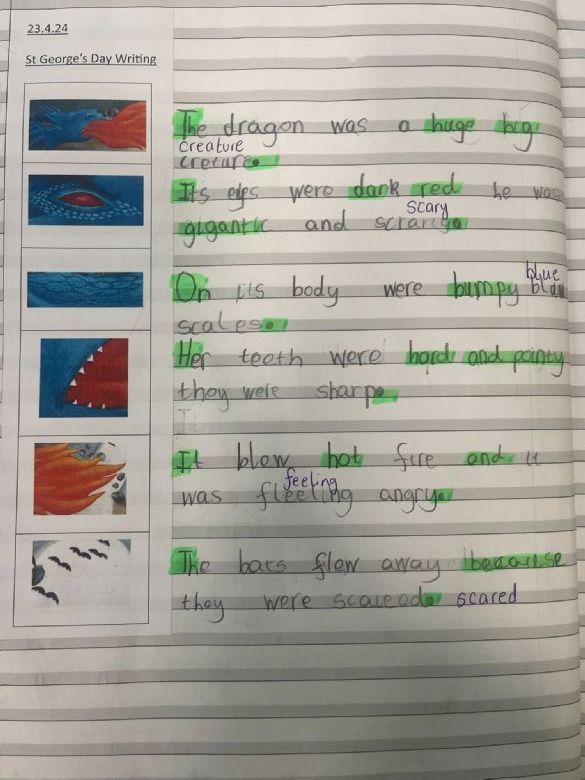 23.4.24
St George's Day Writing
The dragon was a huge big
creature
creture.
Its eys were dark red he was
scary
gigantic and scrariy.
blue
On its body were bumpy blau
scales.
Her teeth were hard and pointy
they were sharp.
I
It blow hot fire and it
feeling
was fleeling angry.
The bats flew away because
they were scaread. scared